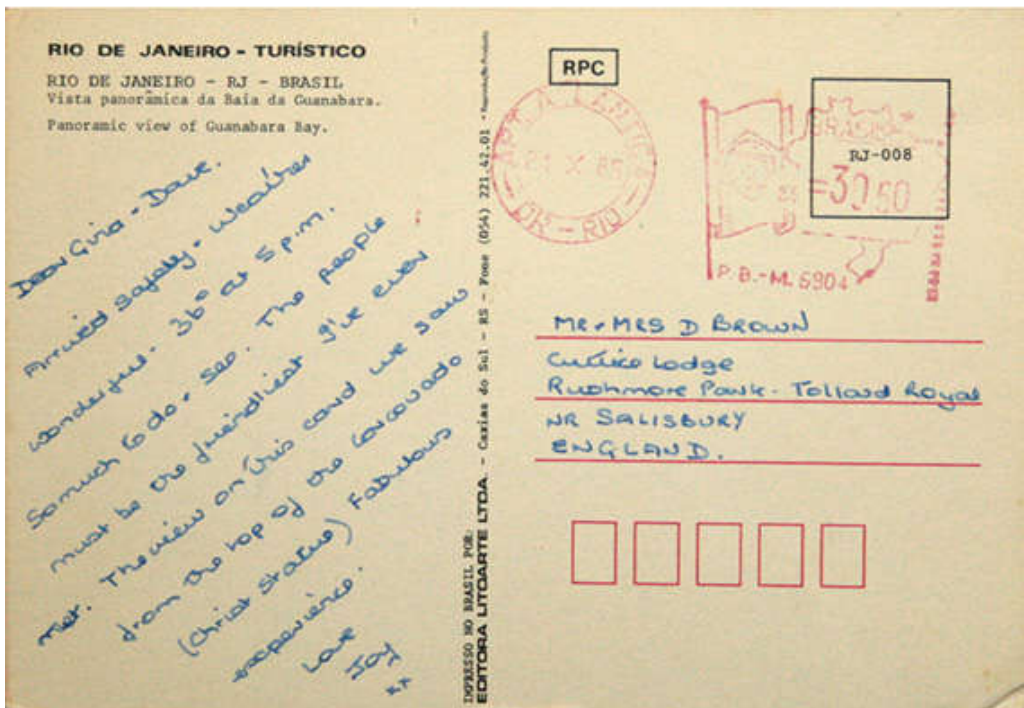 RIO DE JANEIRO - TURÍSTICO
RIO DE JANEIRO - RJ - BRASIL
Vista panorâmica da Baía da Guanabara.
Panoramic view of Guanabara Bay.
Dear Gina + Dave.
Arrived safely - weather
wonderful - 36° at 5 p.m.
So much to do + see. The people
must be the friendliest I've ever
met. The view on this card we saw
from the top of the Corcovado
(Christ Statue) Fabulous
experience.
Love
Joy
xx
IMPRESSO NO BRASIL POR:
EDITORA LITOARTE LTDA. - Caxias do Sul - RS - Fone (054) 221.42.01
RPC
DR - RIO
BRASIL
RJ-008
=3050
P.B.-M. 5904
MR + MRS D BROWN
Lodge
Rushmore Park - Tollard Royal
NR SALISBURY
ENGLAND.